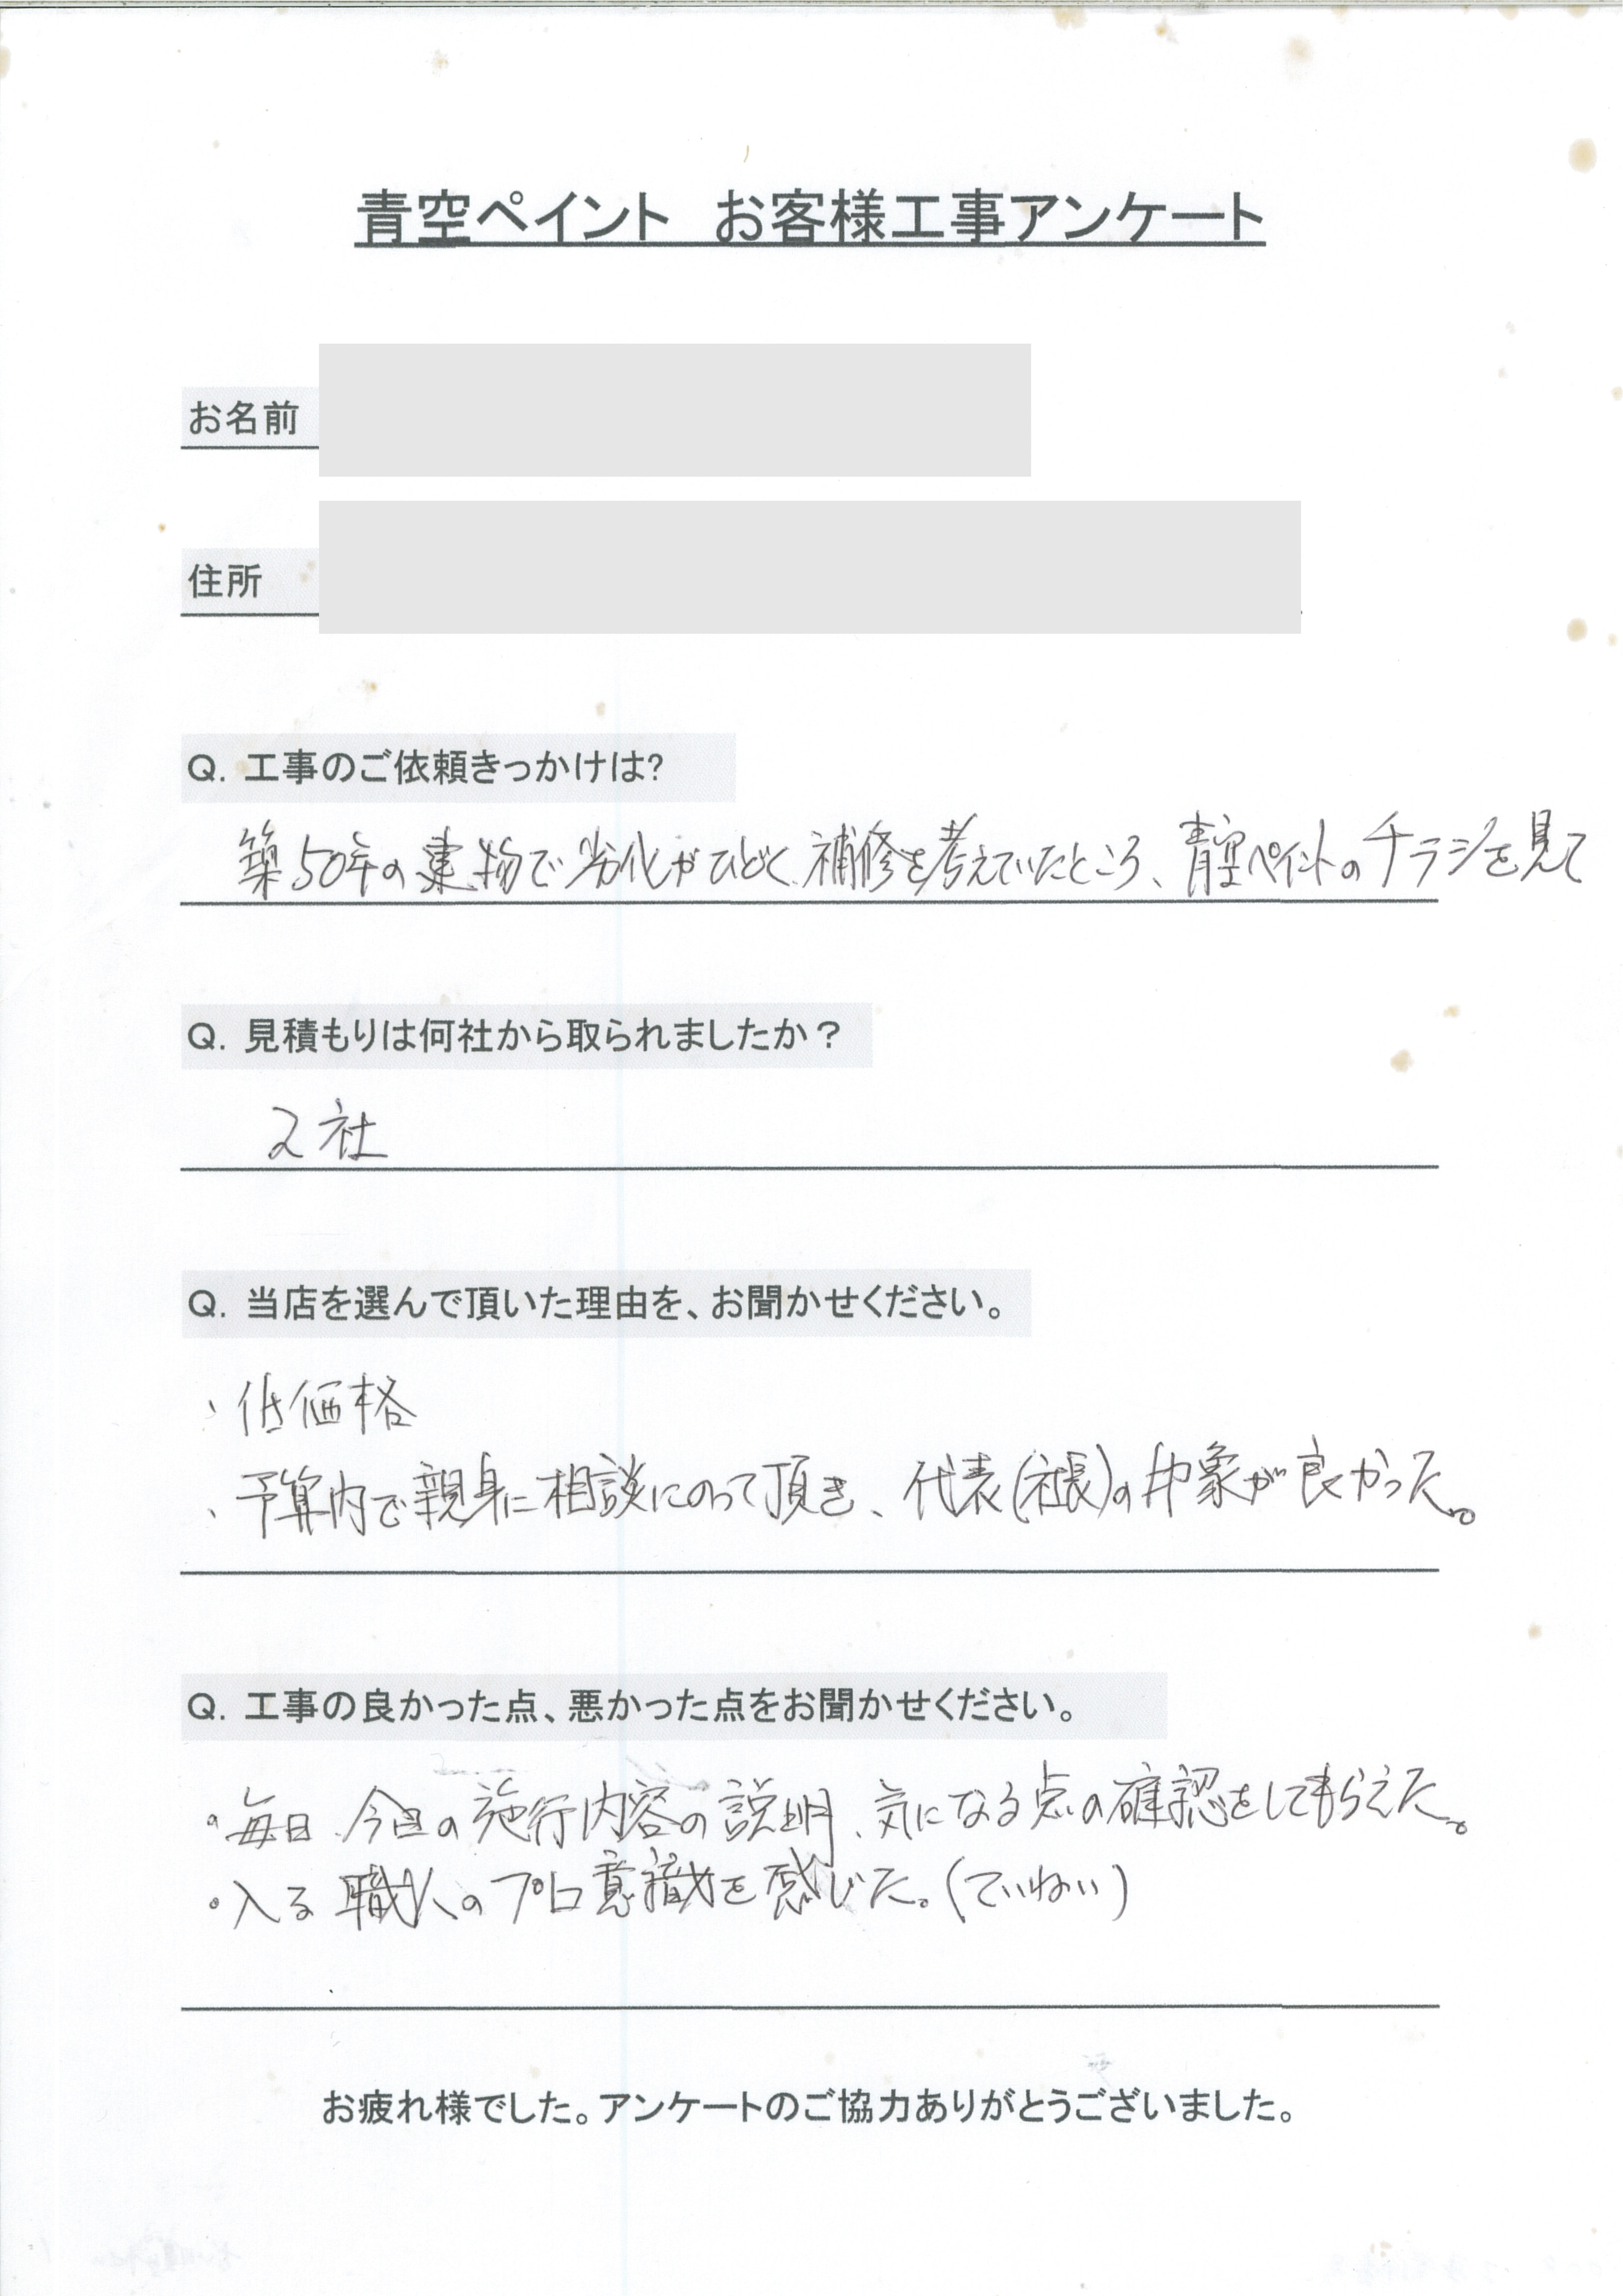 青空ペイント お客様工事アンケート
お名前
住所
Q. 工事のご依頼きっかけは?
築50年の建物で劣化がひどく、補修を考えていたところ、青空ペイントのチラシを見て
Q. 見積もりは何社から取られましたか？
2社
Q. 当店を選んで頂いた理由を、お聞かせください。
・低価格
・予算内で親身に相談にのって頂き、代表(社長)の印象が良かった。
Q. 工事の良かった点、悪かった点をお聞かせください。
・毎日、今日の施行内容の説明、気になる点の確認をしてもらえた。
・入る職人のプロ意識を感じた。(ていねい)
お疲れ様でした。アンケートのご協力ありがとうございました。